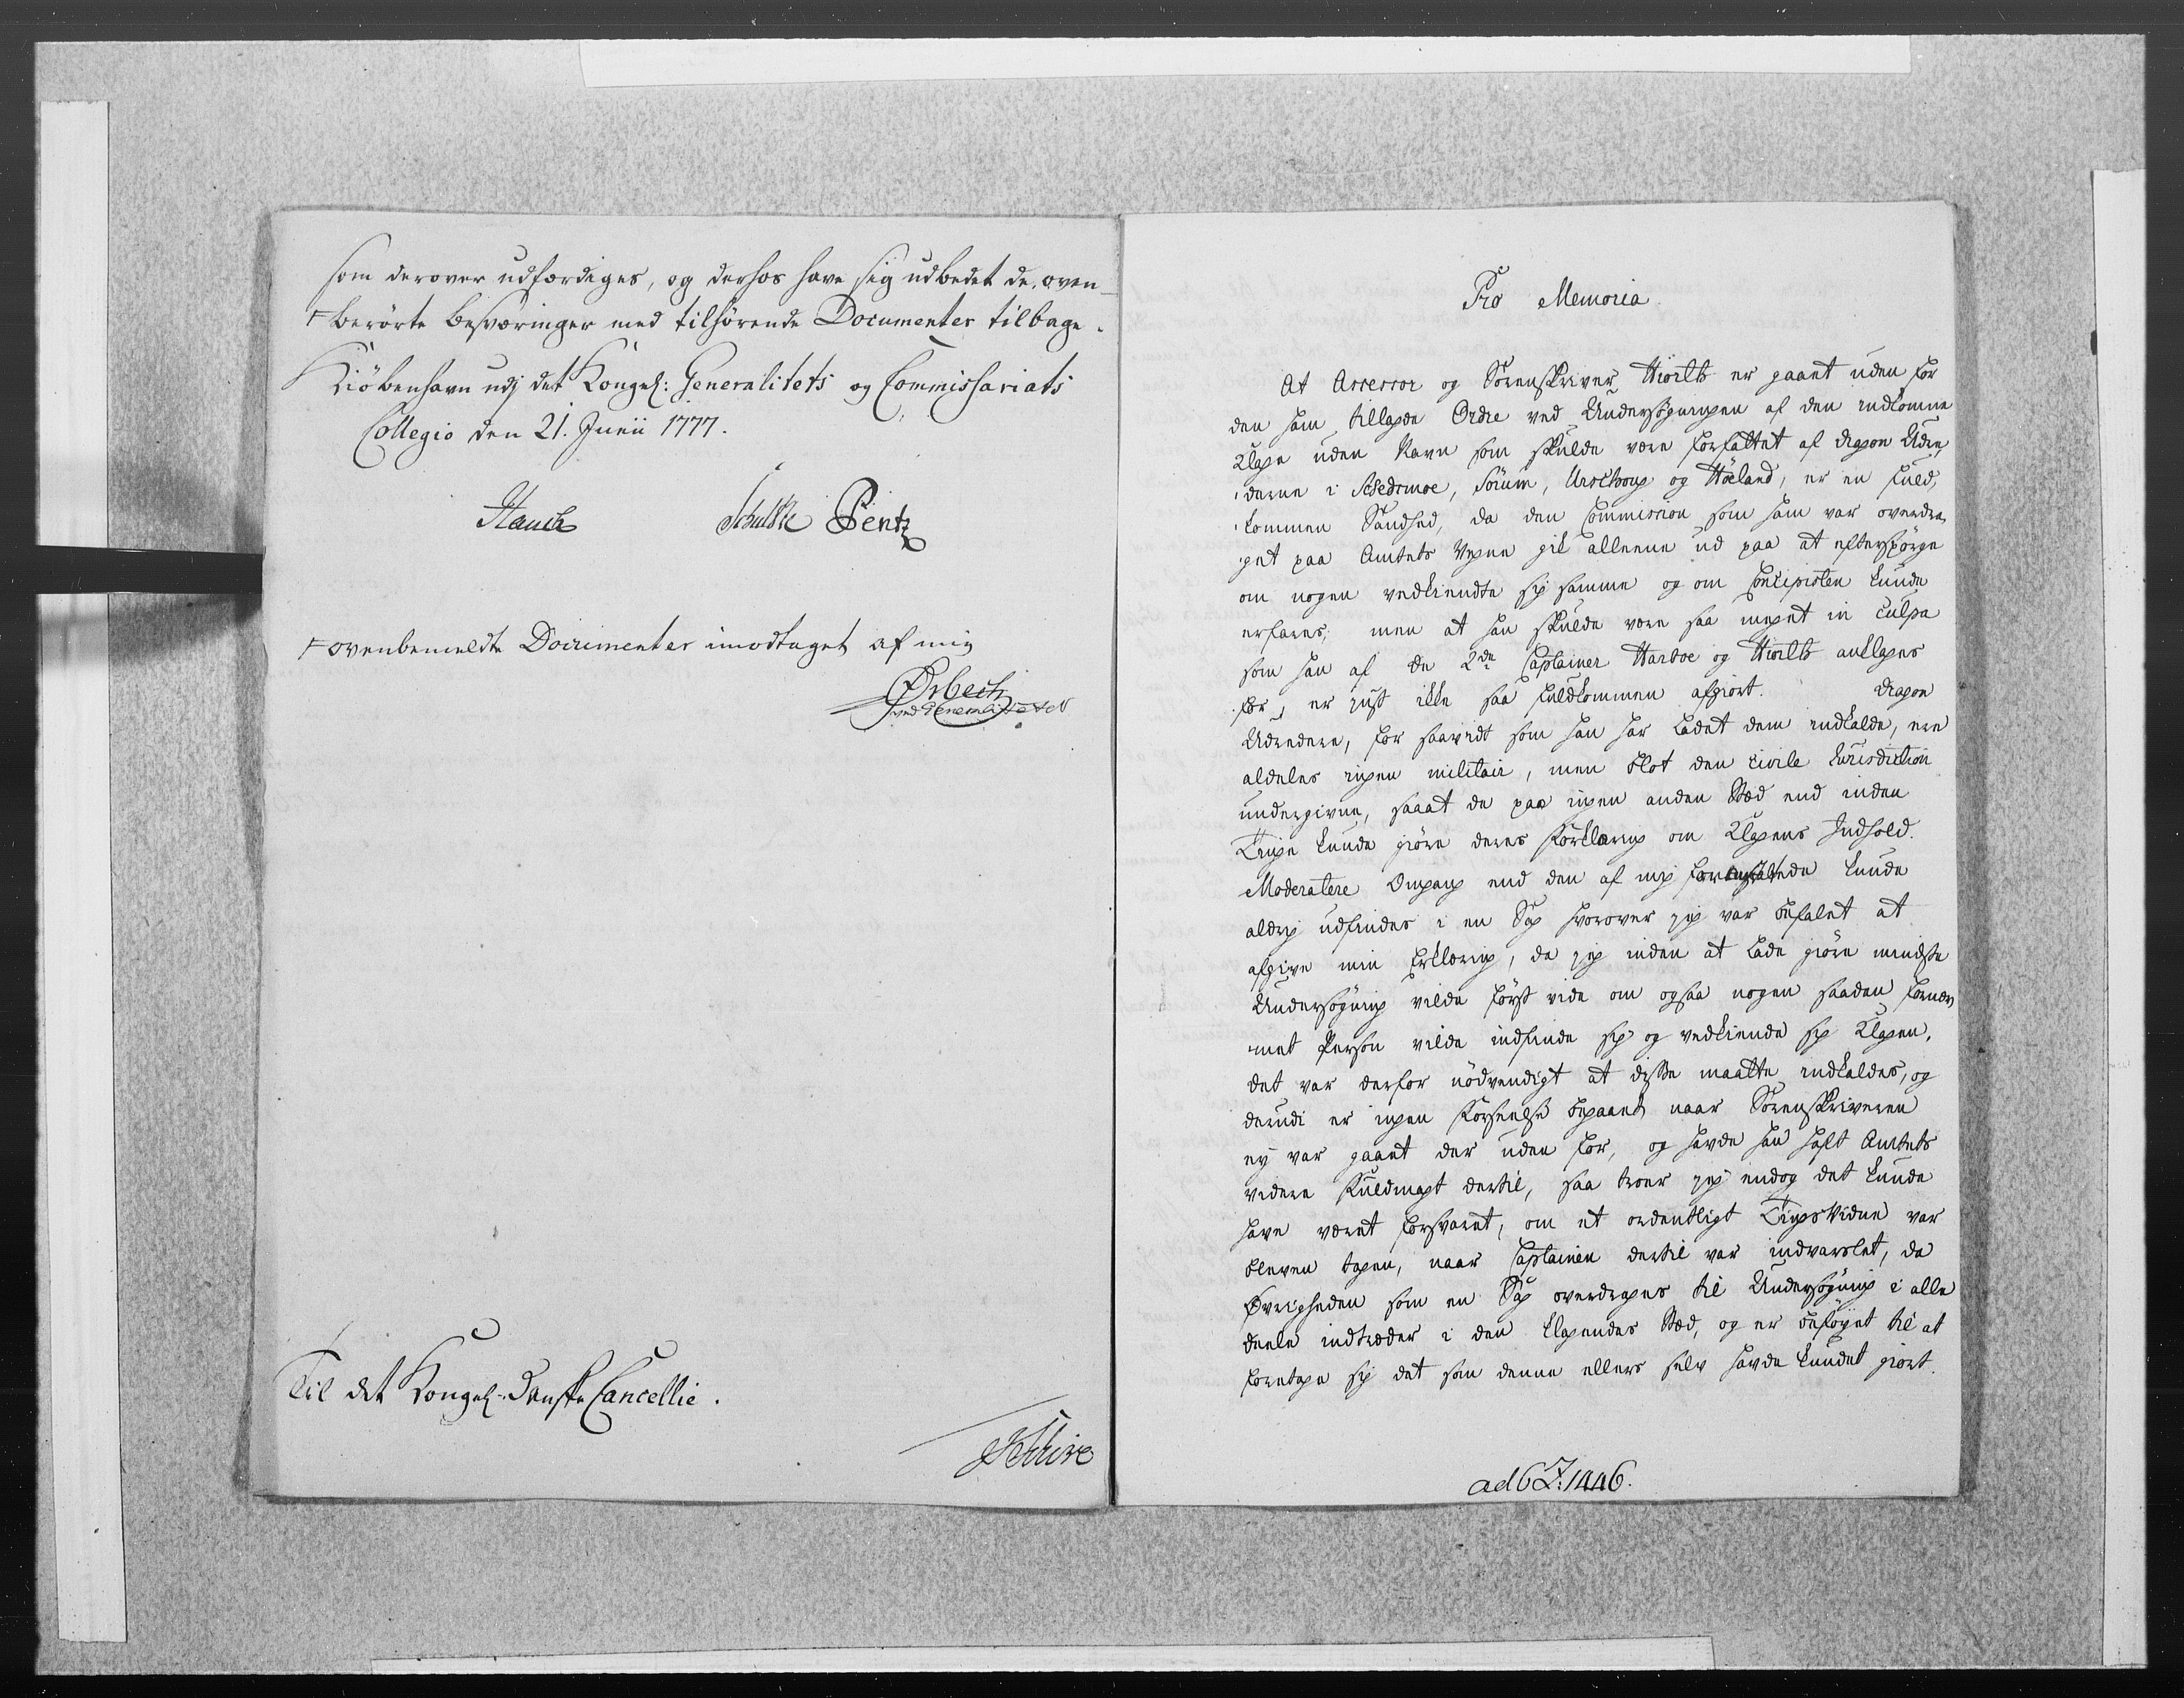 som derover udfærdiges, og derhos have sig udbedet de oven-
⊢ berörte besværinger med tilhörende Documenter tilbage.
Kiöbenhavn udj det Kongel: Generalitets og Commissariats
Collegio den 21. Junii 1777.
Hauch Schultze Pentz
⊢ ovenbemeldte Documenter imodtaget af mig
Ørbech
ved Generalitetet
Til det Kongel: Danske Cancellie.
Pro Memoria
At Assessor og Sörenskriver Hiorth er gaaet uden for
den ham tillagde Ordre ved Undersögningen af den indkomne
Klage uden Navn som skulde være forfattet af dragon Udre-
derne i Skedsmoe, Sörum, Urschoug og Höeland, er en fuld-
kommen Sandhed, da den Commission som ham var overdra-
get paa Amtets Vegne gik alleene ud paa at efterspörge
om nogen vedkiendte sig samme og om Concipisten kunde
erfares; men at han skulde være saa meget in Culpa
som han af de 2de Captainer Harboe og Hiorth anklages
for, er just ikke saa fuldkommen afgiort. Dragon
Udredere, for saavidt som han har ladet dem indkalde, ere
aldeles ingen militair, men blot den civile Jurisdiction
undergivne, saaat de paa ingen anden Stæd end inden
Tinge kunde giöre deres Forklaring om Klagens Indhold.
Moderatere Omgang end den af mig foranstaltede kunde
aldrig udfindes i en Sag hvorover jeg var befalet at
afgive min Erklæring, da jeg inden at lade giöre mindste
Undersögning vilde först vide om ogsaa nogen saadan fornær-
met Person vilde indfinde sig og vedkiende sig Klagen,
det var derfor nödvendigt at disse maatte indkaldes, og
derudi er ingen Forseelse begaaet naar Sörenskriveren
ey var gaaet der uden for, og havde han haft Amtets
videre Fuldmagt dertil, saa troer jeg endog det kunde
have været forsvaret, om et ordentligt TingsVidne var
bleven tagen, naar Captainen dertil var indvarslet, da
Øvrigheden som en Sag overdrages til Undersögning i alle
deele indtræder i den klagendes Stæd, og er beföyet til at
foretage sig det som denne ellers selv havde kundet giort.
ad 6 Z: 1446.